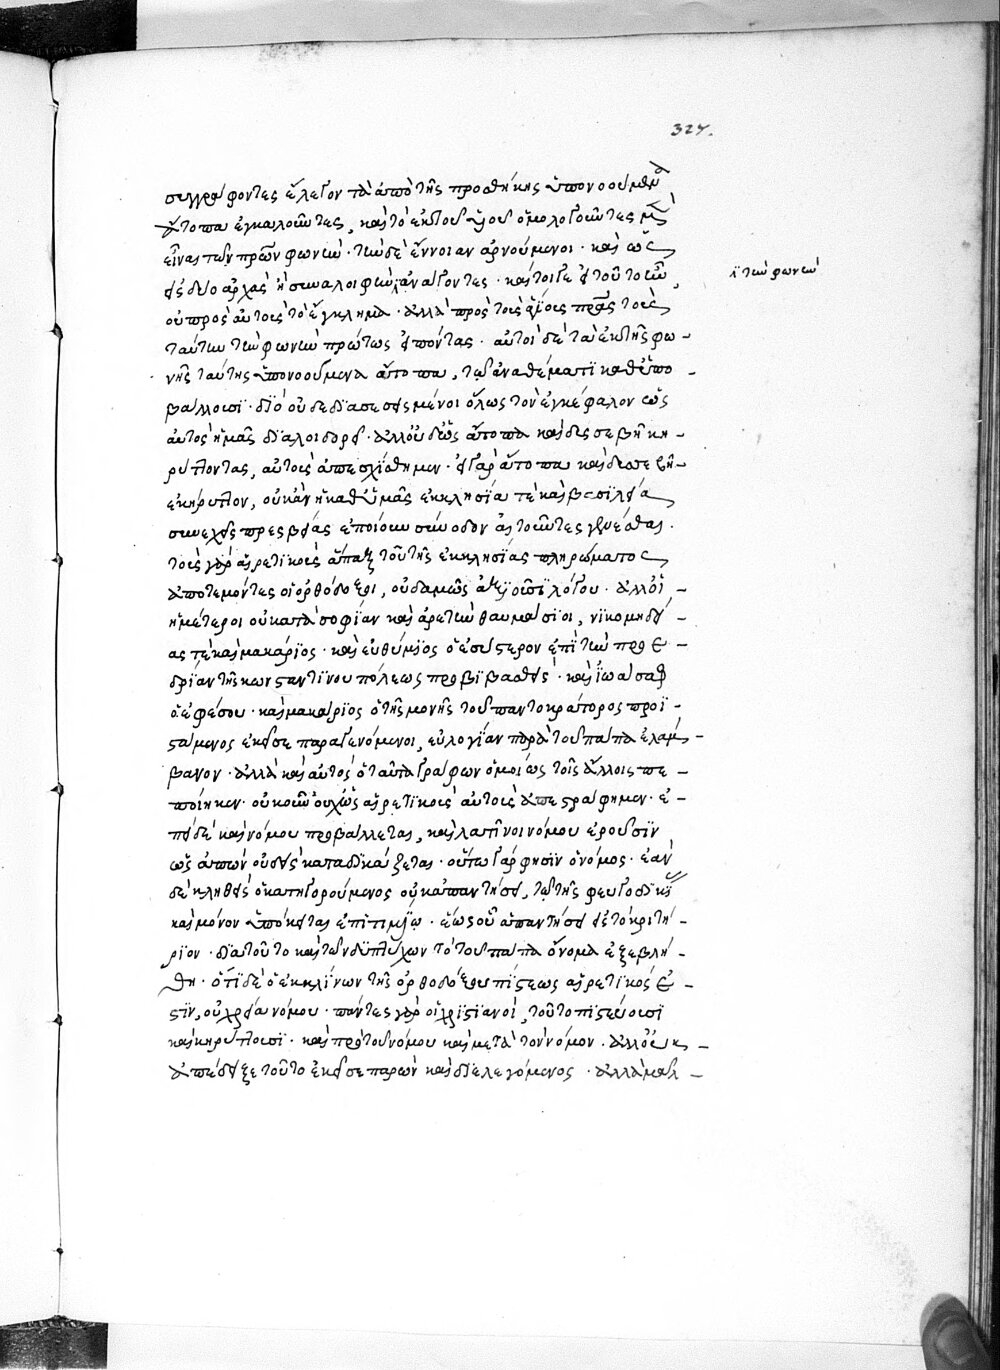 327.
συγγράφοντες ἔλεγον τὰ ἀπὸ τῆς προσθήκης ὑπονοούμενα
ἄτοπα ἐγκαλοῦντες, καὶ τὸ ἐκ τοῦ υἱοῦ ὁμολογοῦντες μὲν
εἶναι τῶν πρῶν φωνῶν· τὴν δὲ ἔννοιαν ἀρνούμενοι· καὶ ὡς
εἰς δύο ἀρχὰς ἢ συναλοιφὴν ἀνάγοντες· καίτοιγε εἰ τοῦτο ἦν,
ἢ τὴν φωνὴν
οὐ πρὸς αὐτοὺς τὸ ἔγκλημα· ἀλλὰ πρὸς τοὺς ἁγίους πρας τοὺς
ταύτην τὴν φωνὴν πρώτως εἰπόντας· αὐτοὶ δὲ τὰ ἐκ τῆς φω-
νῆς ταύτης ὑπονοούμενα ἄτοπα, τῷ ἀναθέματι καθυπο-
βάλλουσι· διὸ οὐδὲ διασεσεισμένοι ὅλως τὸν ἐγκέφαλον ὡς
αὐτὸς ἡμᾶς διαλοιδορεῖ· ἀλλ' οὐδ' ὡς ἄτοπα καὶ δυσσεβῆ κη-
ρύττοντας, αὐτοὺς ἀπεσχίσθημεν· εἰ γὰρ ἄτοπα καὶ δυσσεβῆ
ἐκήρυττον, οὐκ ἂν ἡ καθ' ἡμᾶς ἐκκλησία τὲ καὶ βασιλεία
συνεχεῖς πρεσβείας ἐποίουν σύνοδον αἰτοῦντες γενέσθαι·
τοὺς γὰρ αἱρετικοὺς ἅπαξ τοῦ τῆς ἐκκλησίας πληρώματος
ἀποτεμόντες οἱ ὀρθόδοξοι, οὐδαμῶς ἀξιοῦσι λόγου· ἀλλ' οἱ
ἡμέτεροι οἱ κατὰ σοφίαν καὶ ἀρετὴν θαυμάσιοι, νικομηδεί-
ας τὲ καὶ μακάριος· καὶ εὐθύμιος ὁ ἐς ὕστερον ἐπὶ τὴν προε-
δρίαν τῆς κωνσταντίνου πόλεως προβιβασθείς· καὶ ἰωάσαφ
ὁ ἐφέσου· καὶ μακάριος ὁ τῆς μονῆς τοῦ παντοκράτορος προϊ-
στάμενος ἐκεῖσε παραγενόμενοι, εὐλογίαν παρὰ τοῦ πάπα ἐλάμ-
βανον· ἀλλὰ καὶ αὐτὸς ὁ ταῦτα γράφων ὁμοίως τοῖς ἄλλοις πε-
ποίηκεν· οὐκοῦν οὐχ ὡς αἱρετικοὺς αὐτοὺς ἀπεστράφημεν· ἐ-
πεὶ δὲ καὶ νόμου προβάλλεται, καὶ λατῖνοι νόμου ἐροῦσιν
ὡς ἀπὼν οὐδεὶς καταδικάζεται· οὕτω γάρ φησιν ὁ νόμος· ἐὰν
δὲ κληθεὶς ὁ κατηγορούμενος οὐκ ἀπαντήσῃ, τῷ τῆς φυγοδικίας
καὶ μόνον ὑπόκειται ἐπιτιμίῳ· ἕως οὗ ἀπαντήσῃ εἰς τὸ κριτή-
ριον· διὰ τοῦτο καὶ τῶν διπτύχων τὸ τοῦ πάπα ὄνομα ἐξεβλή-
θη· ὅτι δὲ ὁ ἐκκλίνων τῆς ὀρθοδόξου πίστεως αἱρετικός ἐ-
στιν, οὐ χρεία νόμου· πάντες γὰρ οἱ χριστιανοὶ, τοῦτο πιστεύουσι
καὶ κηρύττουσι· καὶ πρὸ τοῦ νόμου καὶ μετὰ τὸν νόμον· ἀλλ' οὐκ -
ἀπέδειξε τοῦτο ἐκεῖσε παρὼν καὶ διαλεγόμενος· ἀλλὰ μᾶλ-